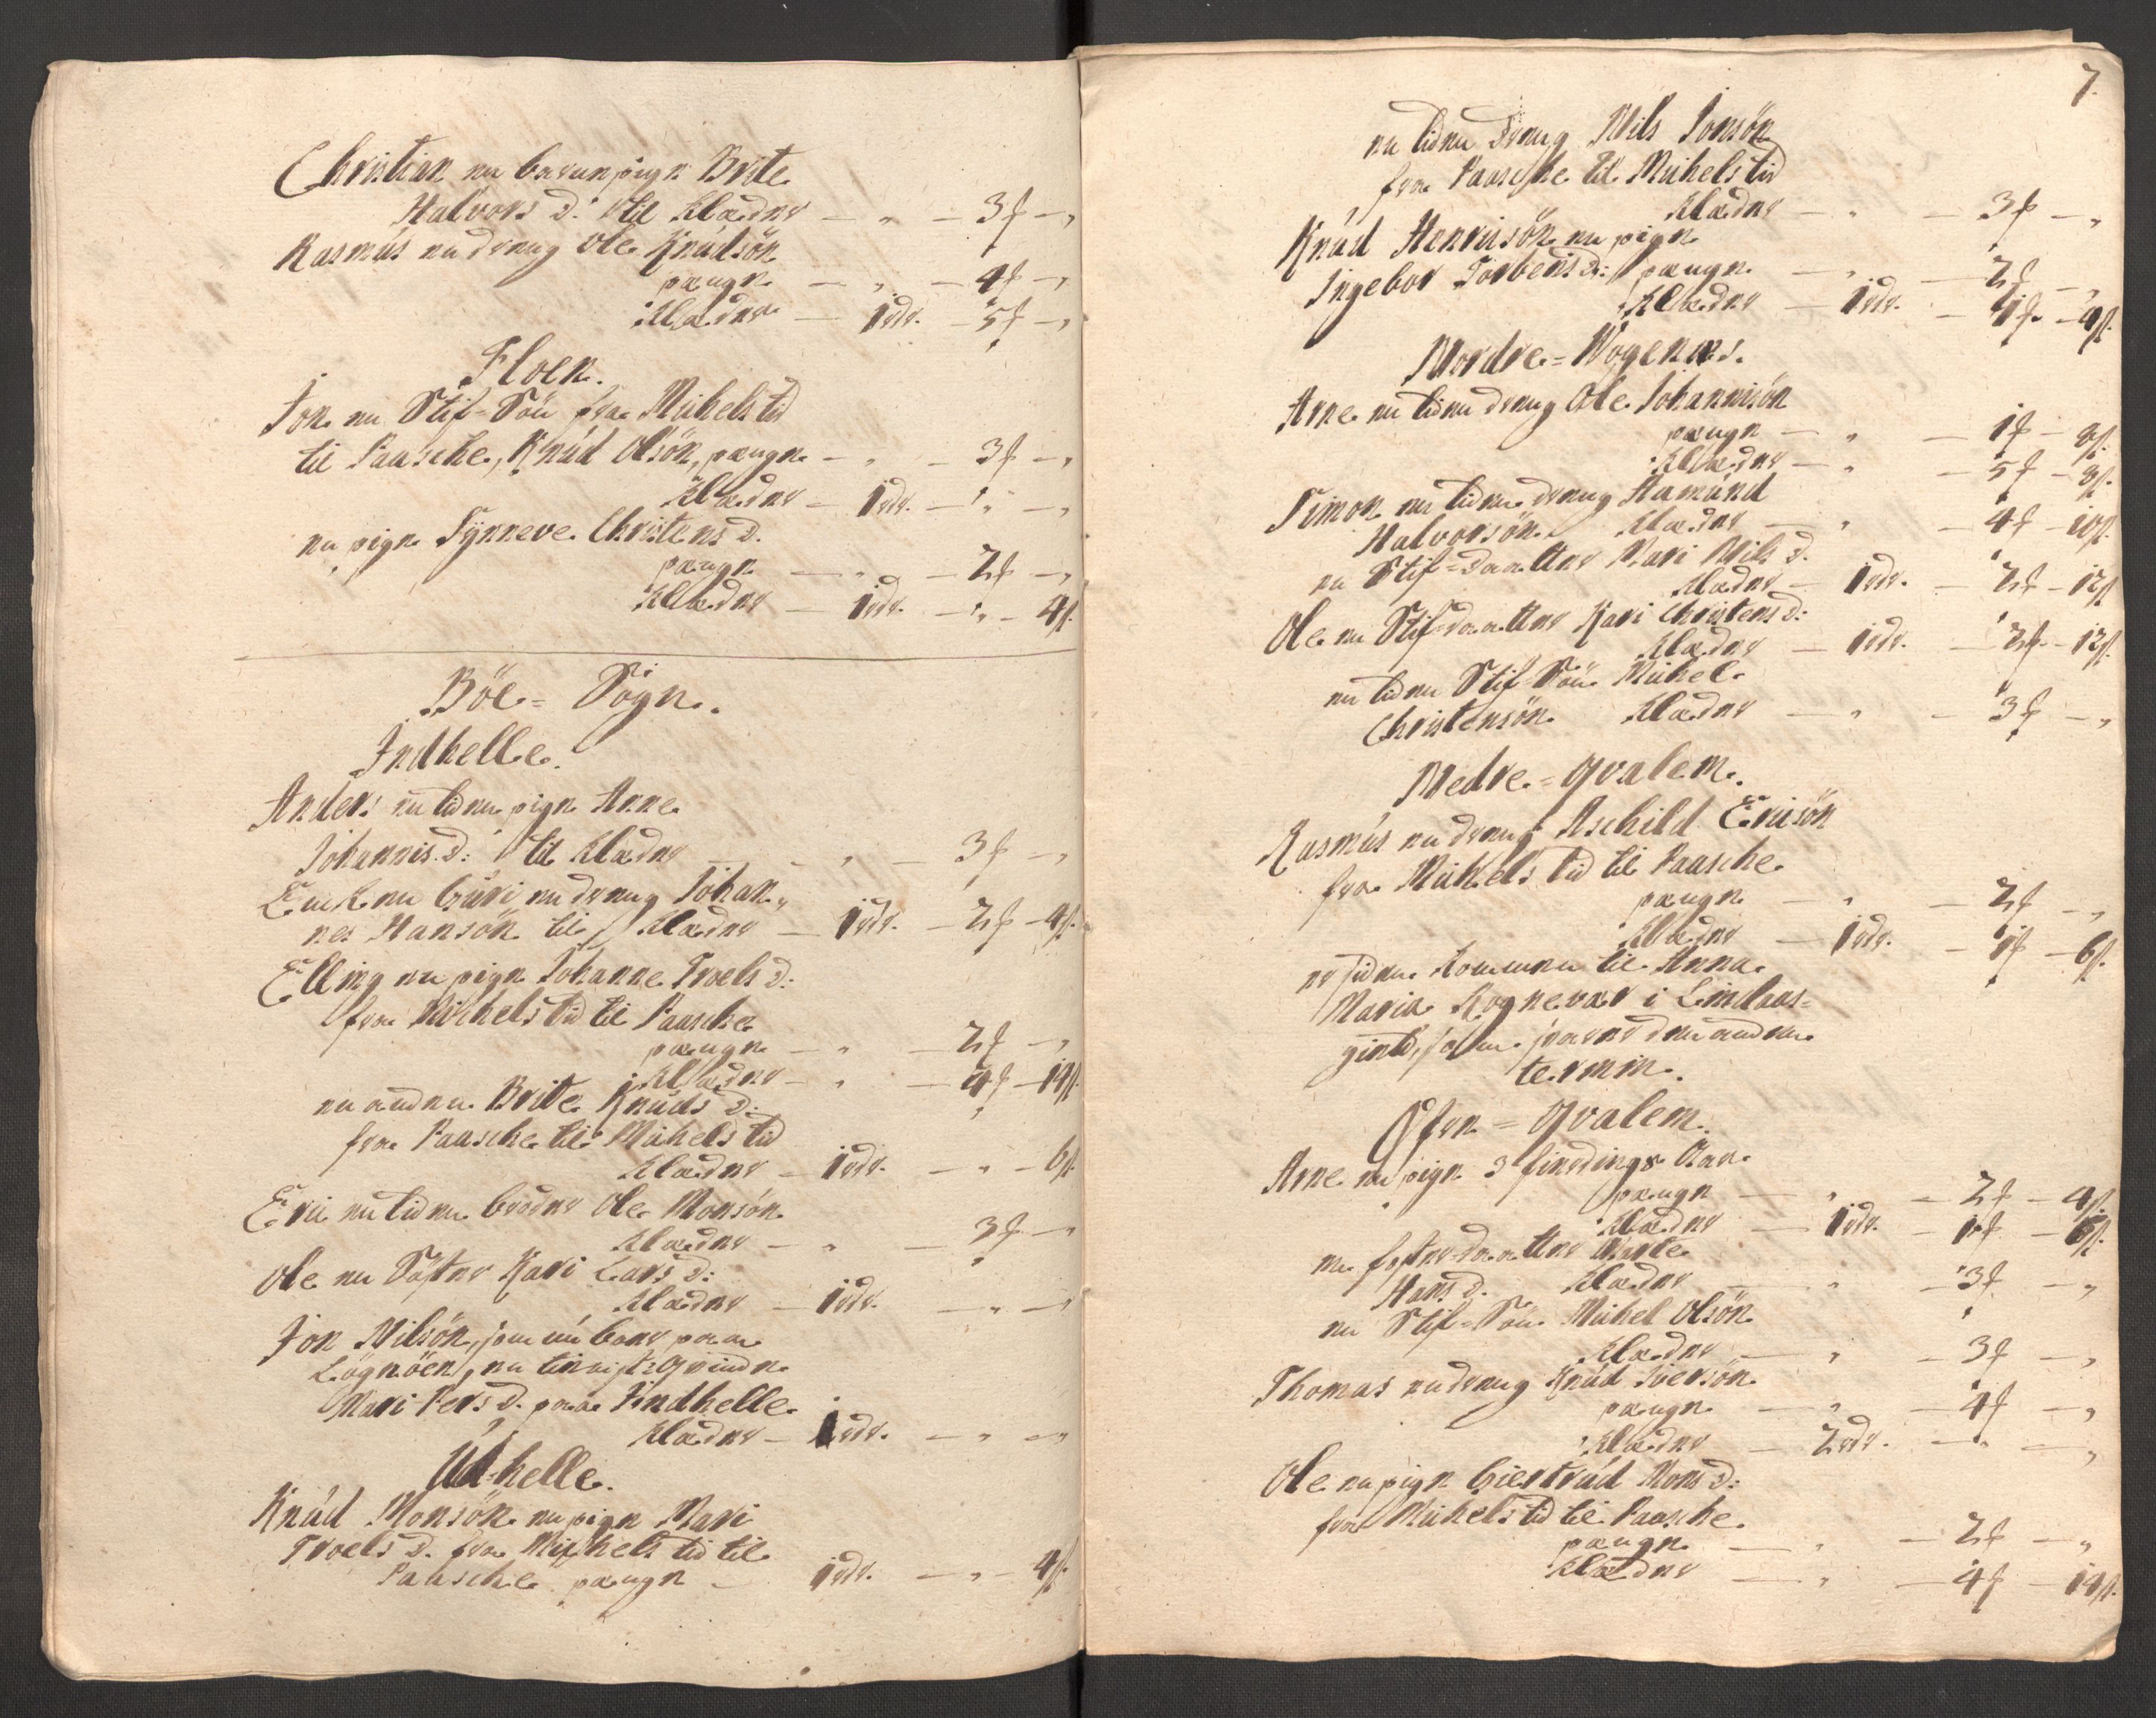 Christian en barnepige Brite
Halvors d: til klæder — „ — 3 f — „
Rasmus en dreng Ole Knudsön
penge — „ — 4 f — „
klæder — 1 rdr. — 5 f — „
Floen.
Jon en Stif-Sön fra Michels tid
til Paasche, Knud Olsön, penge — „ — 3 f — „
klæder — 1 rdr. — „ — „
en pige Synneve Christens d.
penge — „ — 2 f — „
klæder — 1 rdr. — „ — 4 ß.
Böe-Sogn.
Indhelle.
Anders en liden pige Anne
Johannis d: til klæder — „ — 3 f — „
Enken Guri, en dreng Johan-
nes Hansön til klæder — 1 rdr. — 2 f — 4 ß.
Elling en pige Johanne Troels d:
fra Michels tid til Paasche
penge — „ — 2 f — „
klæder — „ — 4 f — 14 ß.
en anden Brite Knuds d:
fra Paasche til Michels tid
klæder — 1 rdr. — „ — 6 ß.
Eric en liden broder Ole Monsön
klæder — „ — 3 f — „
Ole en Söster Kari Lars d:
klæder — 1 rdr. — „ — „
Jon Nilsön, som nu boer paa
Lögnöen, en
Mari Pers d. paa Indhelle
klæder — 1 rdr. — „ — „
Ud-helle.
Knud Monsön en pige Mari
Troels d. fra Michels tid til
Paasche penge — 1 rdr. — „ — 4 ß.
7.
en liden dreng Nils Jonsön
fra Paasche til Michels tid
klæder — „ — 3 f — „
Knud Henricsön en pige
Ingebor Torbens d: penge — „ — 2 f — „
klæder — 1 rdr. — 1 f — 4 ß.
Nordre-Wogenæs.
Arne en liden dreng Ole Johannisön
penge — „ — 1 f — 8 ß.
klæder — „ — 5 f — 8 ß.
Simon en liden dreng Amund
Halvorsön klæder — „ — 4 f — 10 ß.
en Stif-daatter Mari Nils d.
klæder — 1 rdr. — 2 f — 12 ß
Ole en Stif-daatter Kari Christens d:
klæder — 1 rdr. — 2 f — 12 ß.
en liden Stif-Sön Michel
Christensön klæder — „ — 3 f — „
Nedre-Qvalem.
Rasmus en dreng Aschild Ericsön
fra Michels tid til Paasche
penge — „ — 2 f — „
klæder — 1 rdr. — 1 f — 6 ß.
er siden kommen til Anna
Maria Rognevær i Lindaas-
gield, som svarer den anden
termin.
Öfre-Qvalem.
Arne en pige 3 fierdings Aar
penge — „ — 2 f — 4 ß.
klæder — 1 rdr. — 1 f — 6 ß.
en foster-daatter Marte
Hans d. klæder — „ — 3 f — „
en Stif-Sön Michel Olsön
klæder — „ — 3 f — „
Thomas en dreng Knud Iversön
penge — „ — 4 f — „
klæder — 2 rdr. — „ — „
Ole en pige Giertrud Mons d:
fra Michels tid til Paasche
penge — „ — 2 f — „
klæder — „ — 4 f — 14 ß.